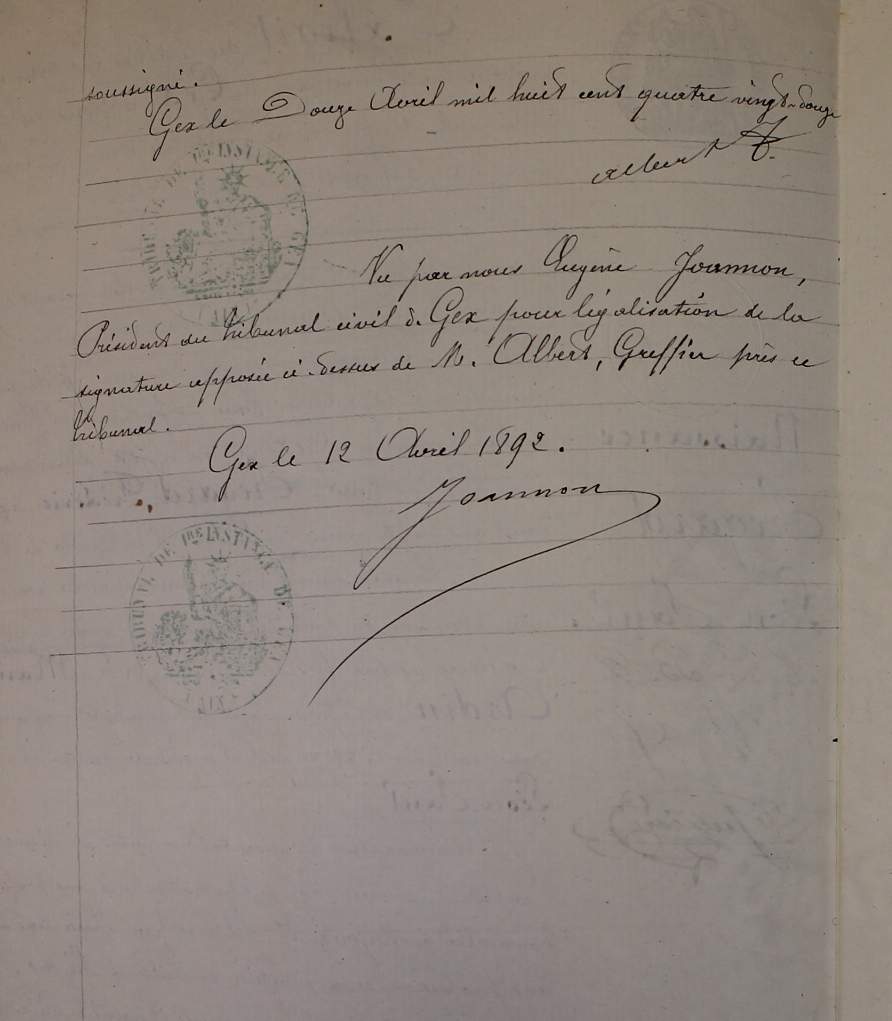 soussigné.
Gex le Douze Avril mil huit cent quatre vingt-douze
Albert
Vu par nous Eugène Joannon,
Président du tribunal civil de Gex pour légalisation de la
signature apposée ci-dessus de M. Albert, Greffier près ce
tribunal.
Gex le 12 Avril 1892.
Joannon
TRIBUNAL DE 1RE INSTANCE DE GEX
TRIBUNAL DE 1RE INSTANCE DE GEX